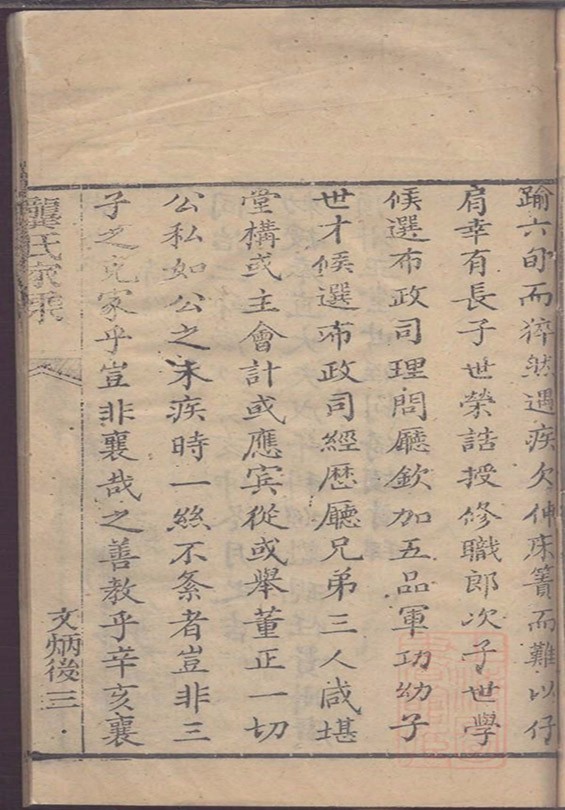 踰六旬而猝然遇疾欠伸床簀而難以仔
肩幸有長子世榮誥授修職郎次子世學
候選布政司理問廳欽加五品軍功幼子
世才候選布政司經歷廳兄弟三人咸堪
堂構或主會計或應宾從或舉董正一切
公私如公之未疾時一絲不紊者豈非三
子之克家乎豈非襄哉之善教乎辛亥襄
龔氏家乘
文炳後 三